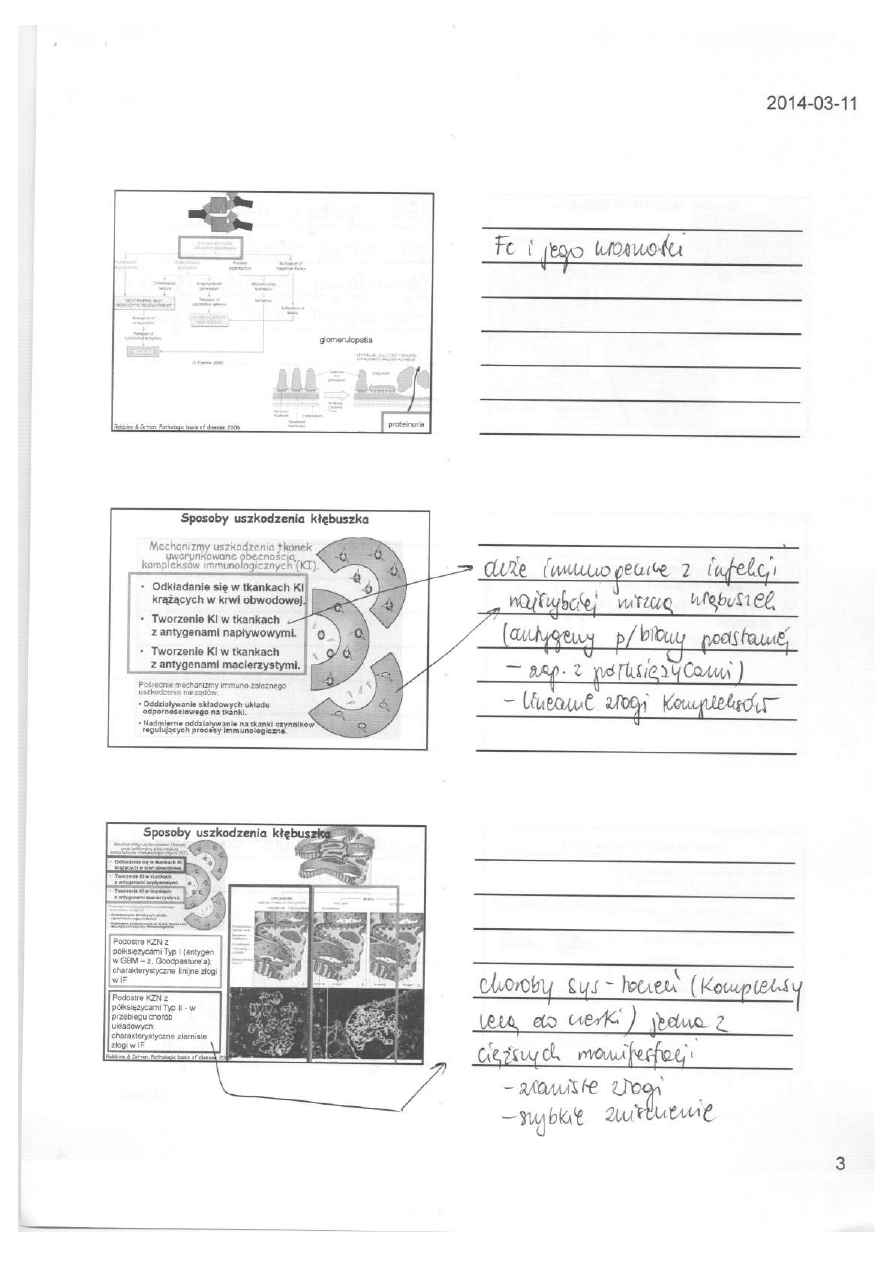 2014-03-11
Fc i jego własności
glomerulopatia
© Elsevier 2005
proteinuria
Robbins & Cotran, Pathologic basis of disease 2005
Sposoby uszkodzenia kłębuszka
Mechanizmy uszkodzenia tkanek
uwarunkowane obecnością
kompleksów immunologicznych (KI).
• Odkładanie się w tkankach KI
krążących w krwi obwodowej.
• Tworzenie KI w tkankach
z antygenami napływowymi.
• Tworzenie KI w tkankach
z antygenami macierzystymi.
Pośrednie mechanizmy immuno-zależnego
uszkodzenia narządów.
• Oddziaływanie składowych układu
odpornościowego na tkanki.
• Nadmierne oddziaływanie na tkanki czynników
regulujących procesy immunologiczne.
duże immunogenne z infekcji
najszybciej niszczą kłębuszek
(antygeny p/błony podstawnej
– zap. z półksiężycami)
– liniowe złogi kompleksów
Sposoby uszkodzenia kłębuszka
Mechanizmy uszkodzenia tkanek
uwarunkowane obecnością
kompleksów immunologicznych (KI).
• Odkładanie się w tkankach KI
krążących w krwi obwodowej.
• Tworzenie KI w tkankach
z antygenami napływowymi.
• Tworzenie KI w tkankach
z antygenami macierzystymi.
Podostre KZN z
półksiężycami Typ I (antygen
w GBM – z. Goodpasture'a);
charakterystyczne linijne złogi
w IF
Podostre KZN z
półksiężycami Typ II - w
przebiegu chorób
układowych;
charakterystyczne ziarniste
złogi w IF
Robbins & Cotran, Pathologic basis of disease
choroby sys-toczeń (kompleksy
lecą do nerki) jedna z
cięższych manifestacji
– ziarniste złogi
– szybkie zniszczenie
3